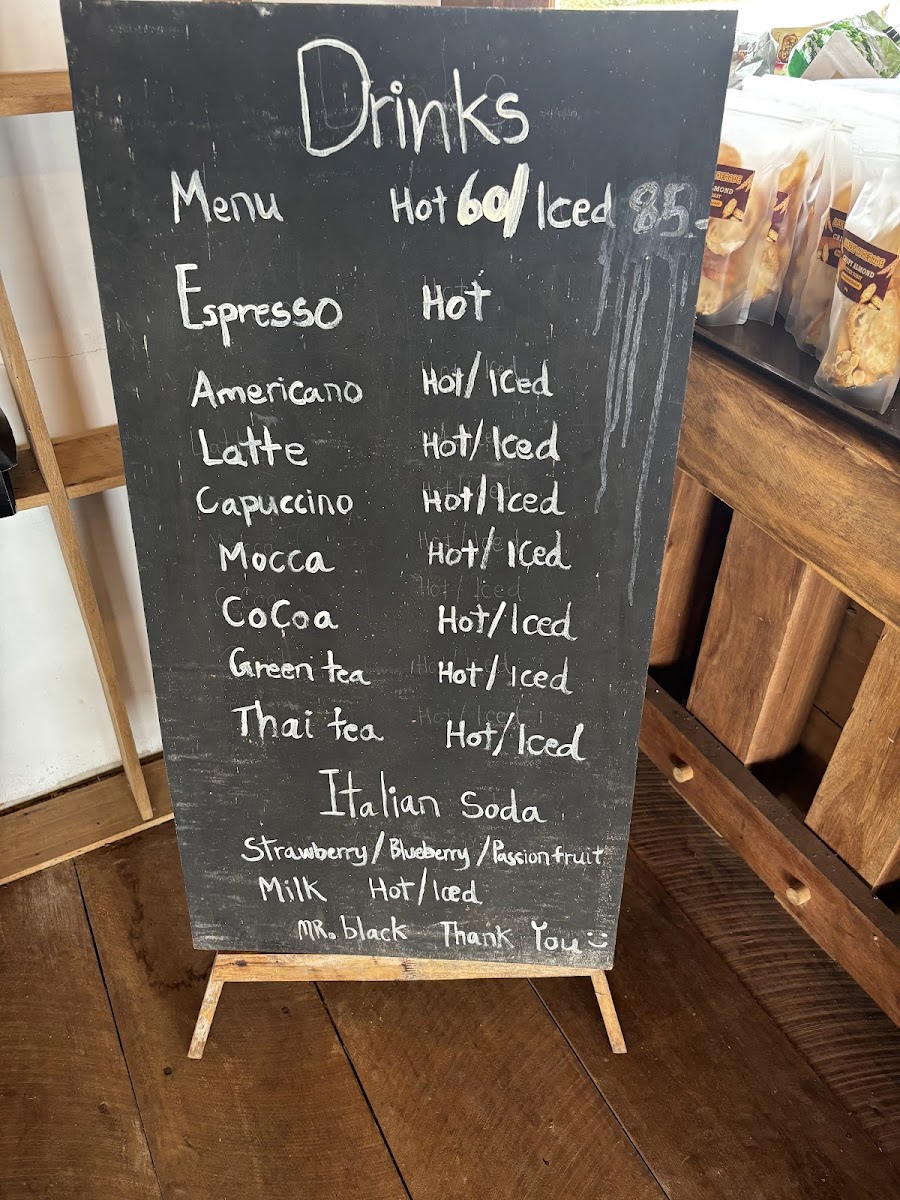 Drinks
Menu Hot 60/ Iced 85.-
Espresso Hot
Americano Hot/Iced
Latte Hot/Iced
Capuccino Hot/Iced
Mocca Hot/Iced
CoCoa Hot/Iced
Green tea Hot/Iced
Thai tea Hot/Iced
Italian Soda
Strawberry/Blueberry/Passion fruit
Milk Hot/Iced
MR. black Thank You
ALMOND